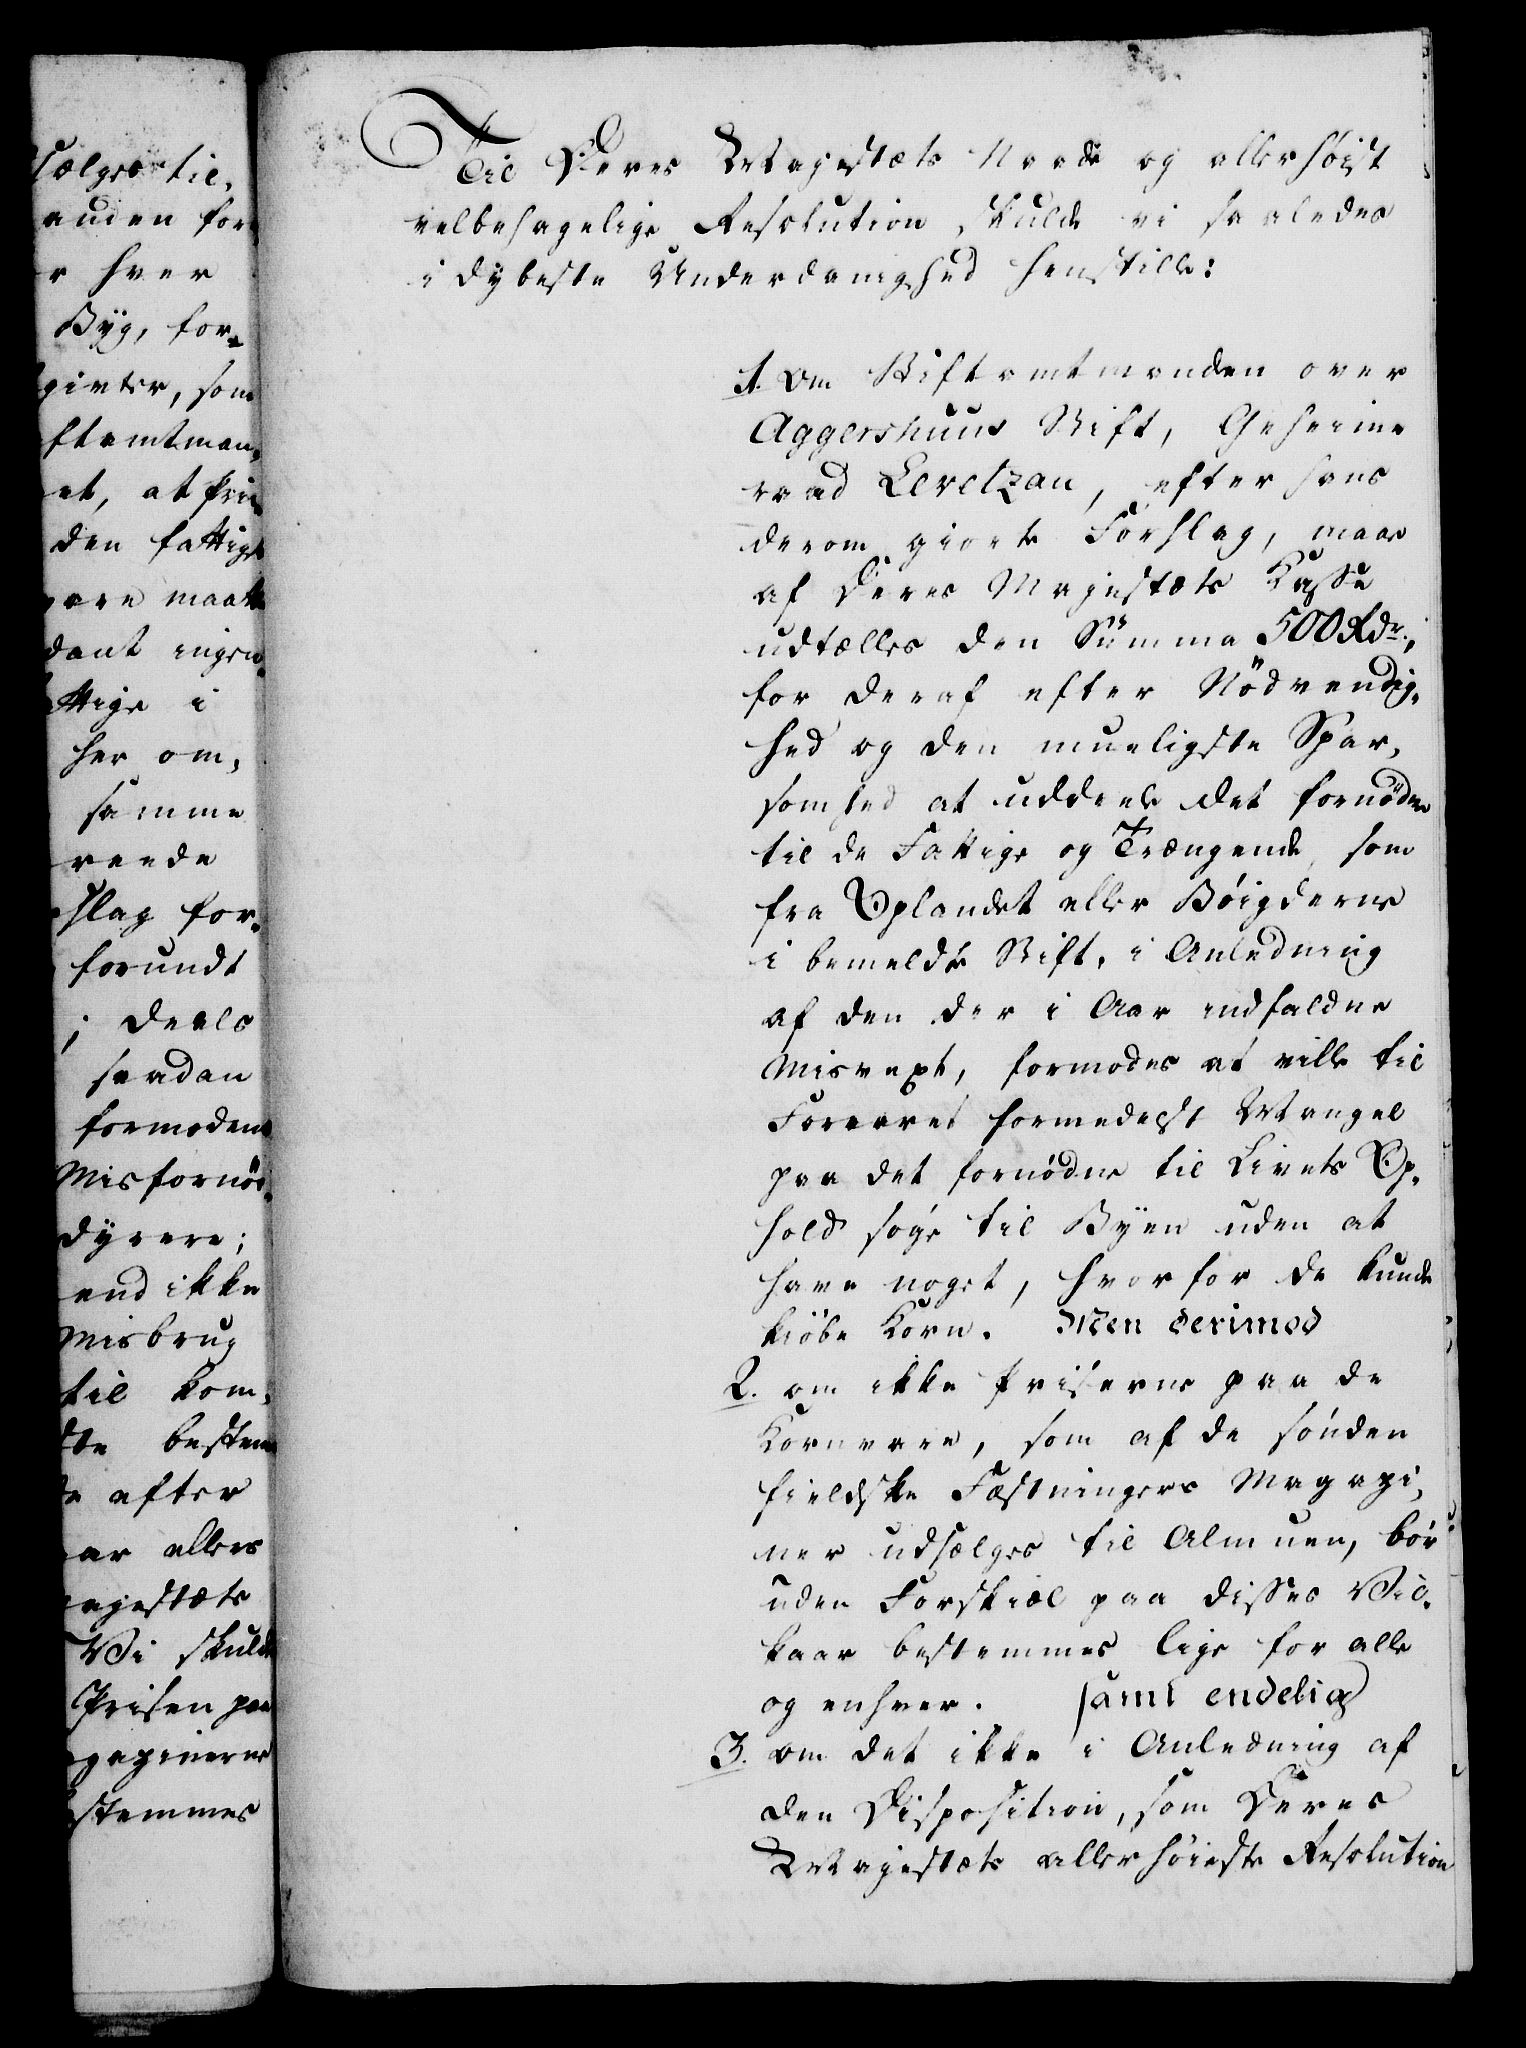 sælges til,
auden for-
r hver
Byg, for-
givter, som
ftamtman-
et, at Pri-
den fattige
vare maatte
dant ingen-
ttige i
her om,
samme
rende
slag for-
forundt
; deels
saadan
formodent
Misfornøi-
dyrere;
end ikke
Misbrug
til Kom-
tte bestem
de efter
ar allers
ajestæts
Vi skulde
Prisen paa
gazinerne
stemmes
Til Deres Majestæts Naade og allerhøist
velbehagelige Resolution, skulde vi saaledes
i dybeste Underdanighed henstille:
1. om Stiftamtmanden over
Aggershuus Stift, Geheime
raad Levetzau, efter hans
derom giorte Forslag, maae
af Deres Majestæts Kasse
udtælles den Summa 500 Rdr.,
for deraf efter Nödvendig-
hed og den mueligste Spar-
somhed at uddeele det fornödne
til de Fattige og Trængende, som
fra Oplandet eller Böigderne
i bemeldte Stift, i Anledning
af den der i Aar indfaldne
Misvext, formodes at ville til
Foraaret formedelst Mangel
paa det fornödne til Livets Op-
hold søge til Byen uden at
have noget, hvorfor de kunde
kiöbe Korn. Men derimod
2. om ikke Priserne paa de
Kornvare, som af de sönden
fieldske Fæstningers Magazi-
ner udsælges til Almuen, bör
uden Forskiæl paa disses Vil-
kaar bestemmes lige for alle
og enhver. samt endelig
3. om det ikke i Anledning af
den Disposition, som Deres
Majestæts allerhöieste Resolution